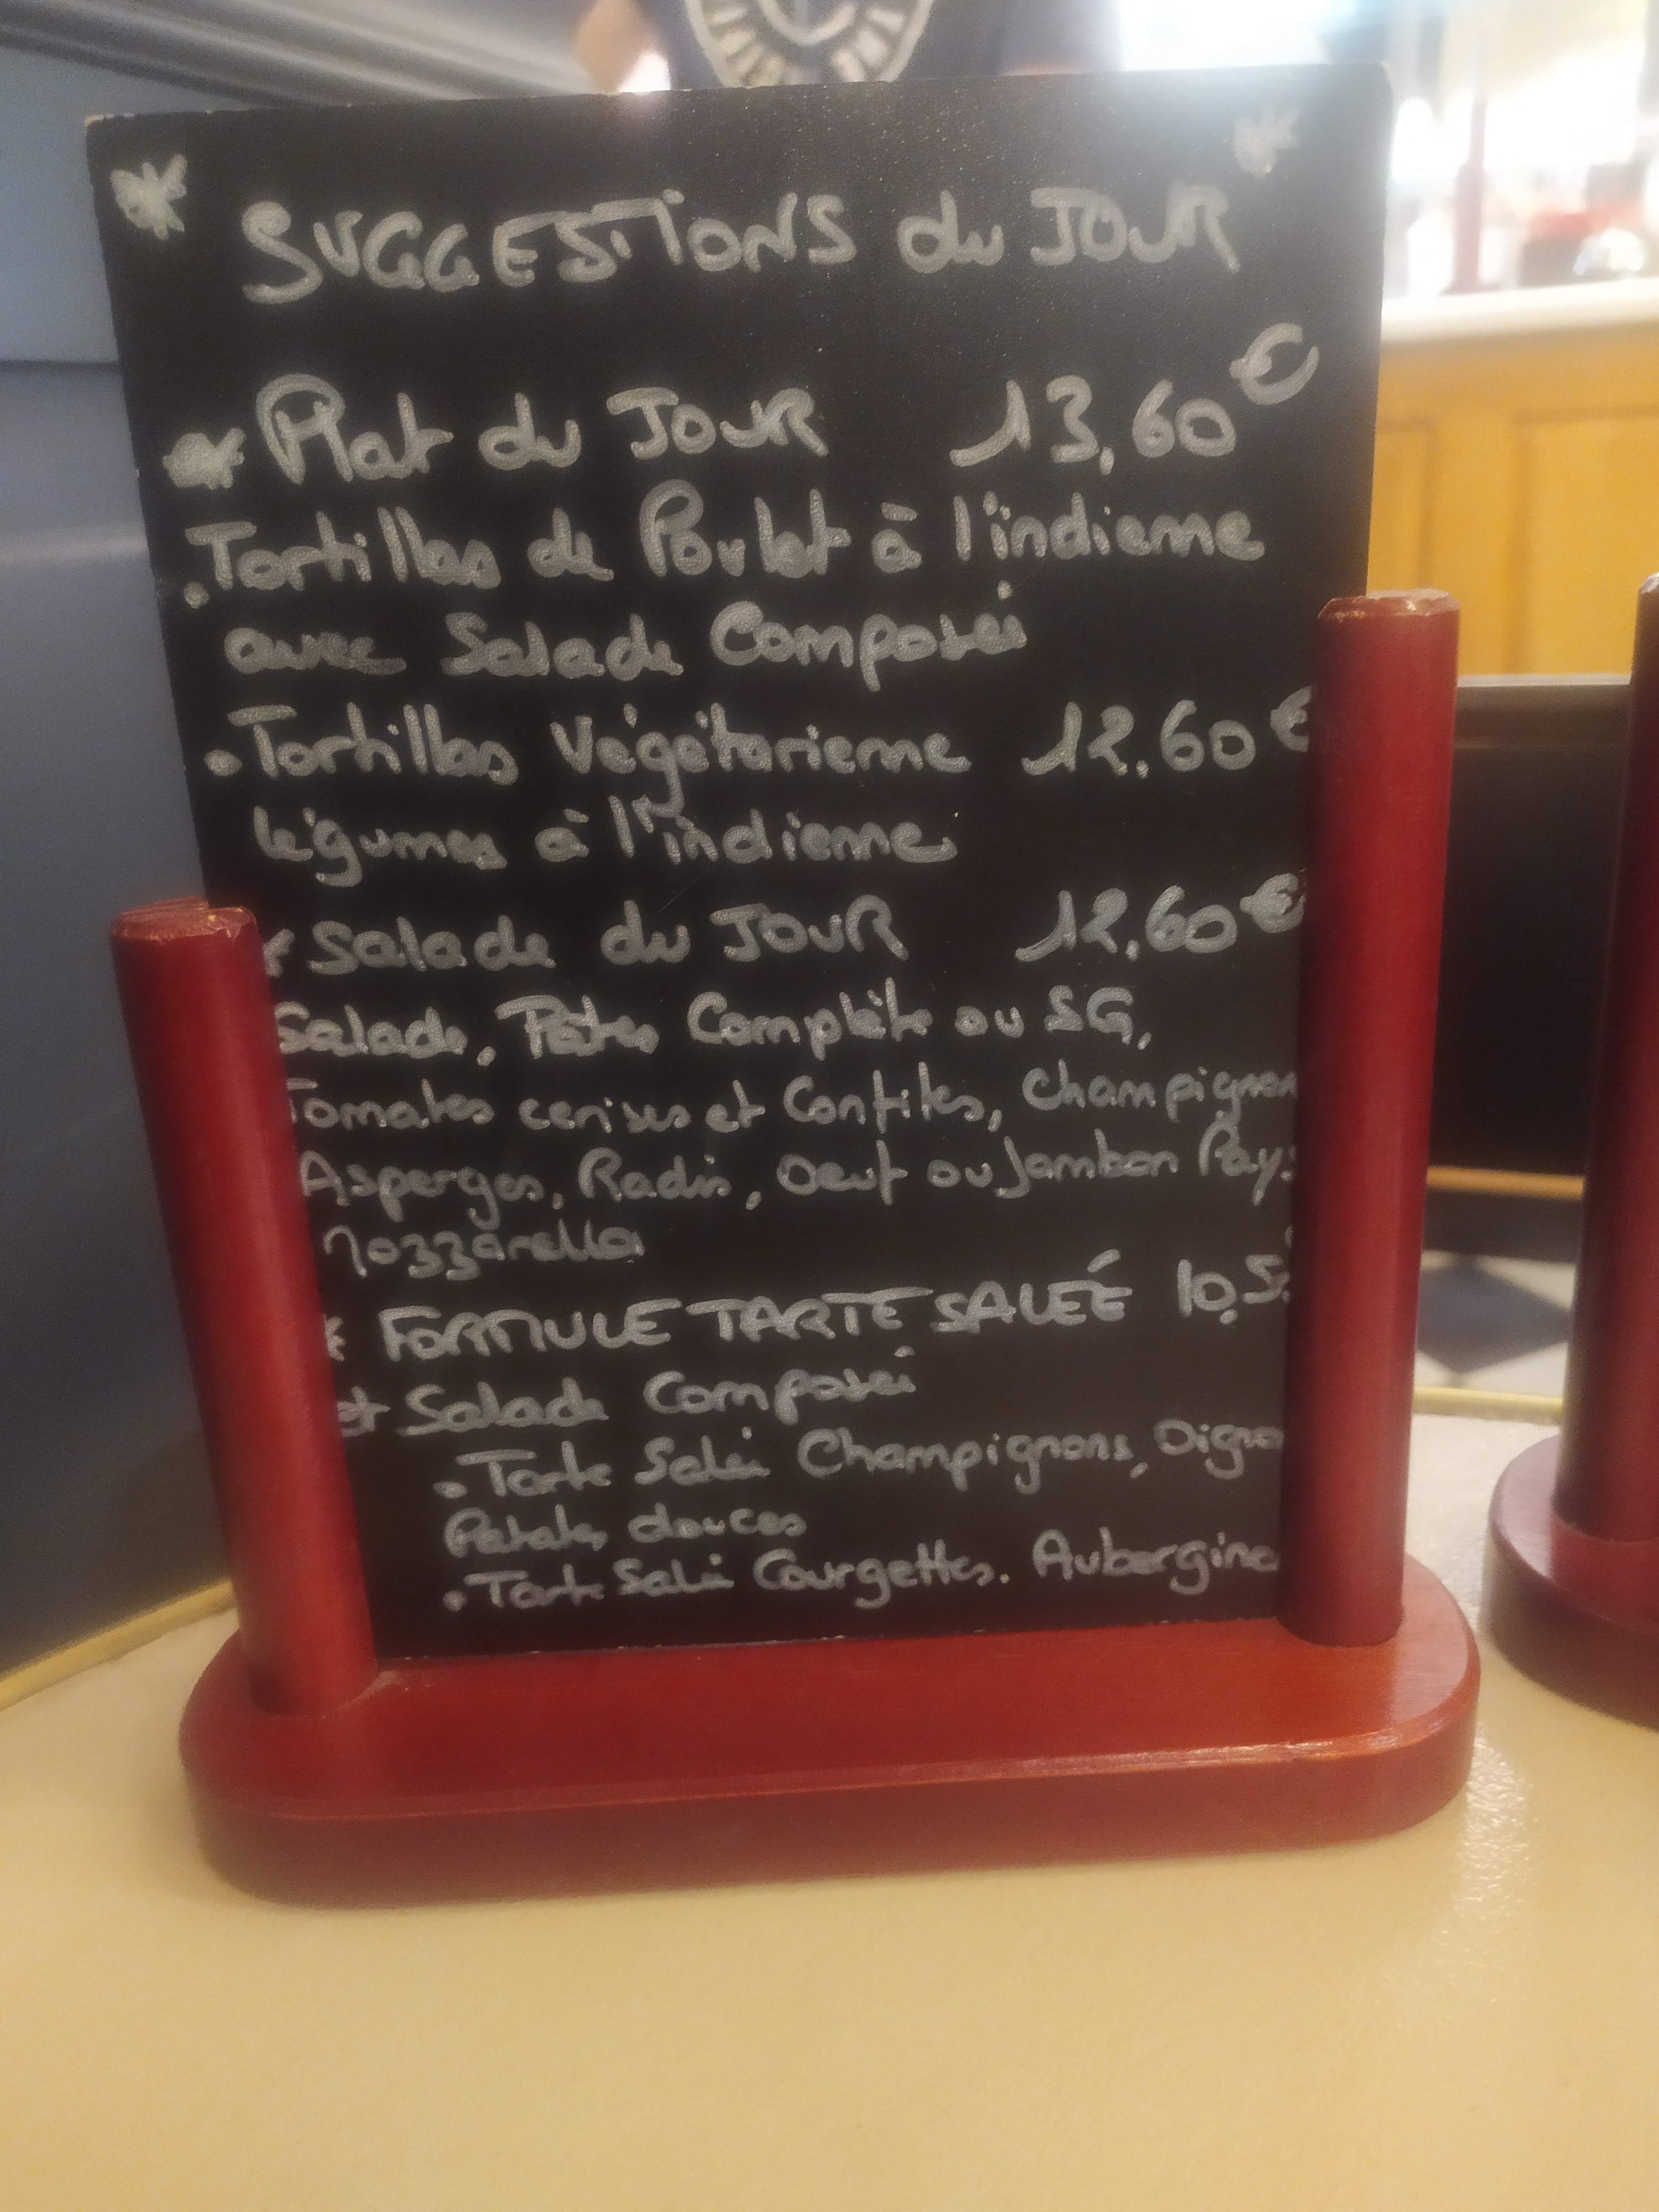 SUGGESTIONS du JOUR
Plat du JOUR 13,60 €
.Tortillas de Poulet à l'indienne
avec Salade Composée
.Tortillas Végétarienne 12.60 €
légumes à l'indienne
Salade du JOUR 12.60 €
Salade, Pâtes Complète ou SG,
Tomates cerises et Confites, Champignon
Asperges, Radis, Oeuf ou Jambon Pays
Mozzarella
FORMULE TARTE SALÉE 10,5
et Salade Composée
.Tarte Salée Champignons, Oigno
Patates douces
.Tarte Salée Courgettes. Aubergine